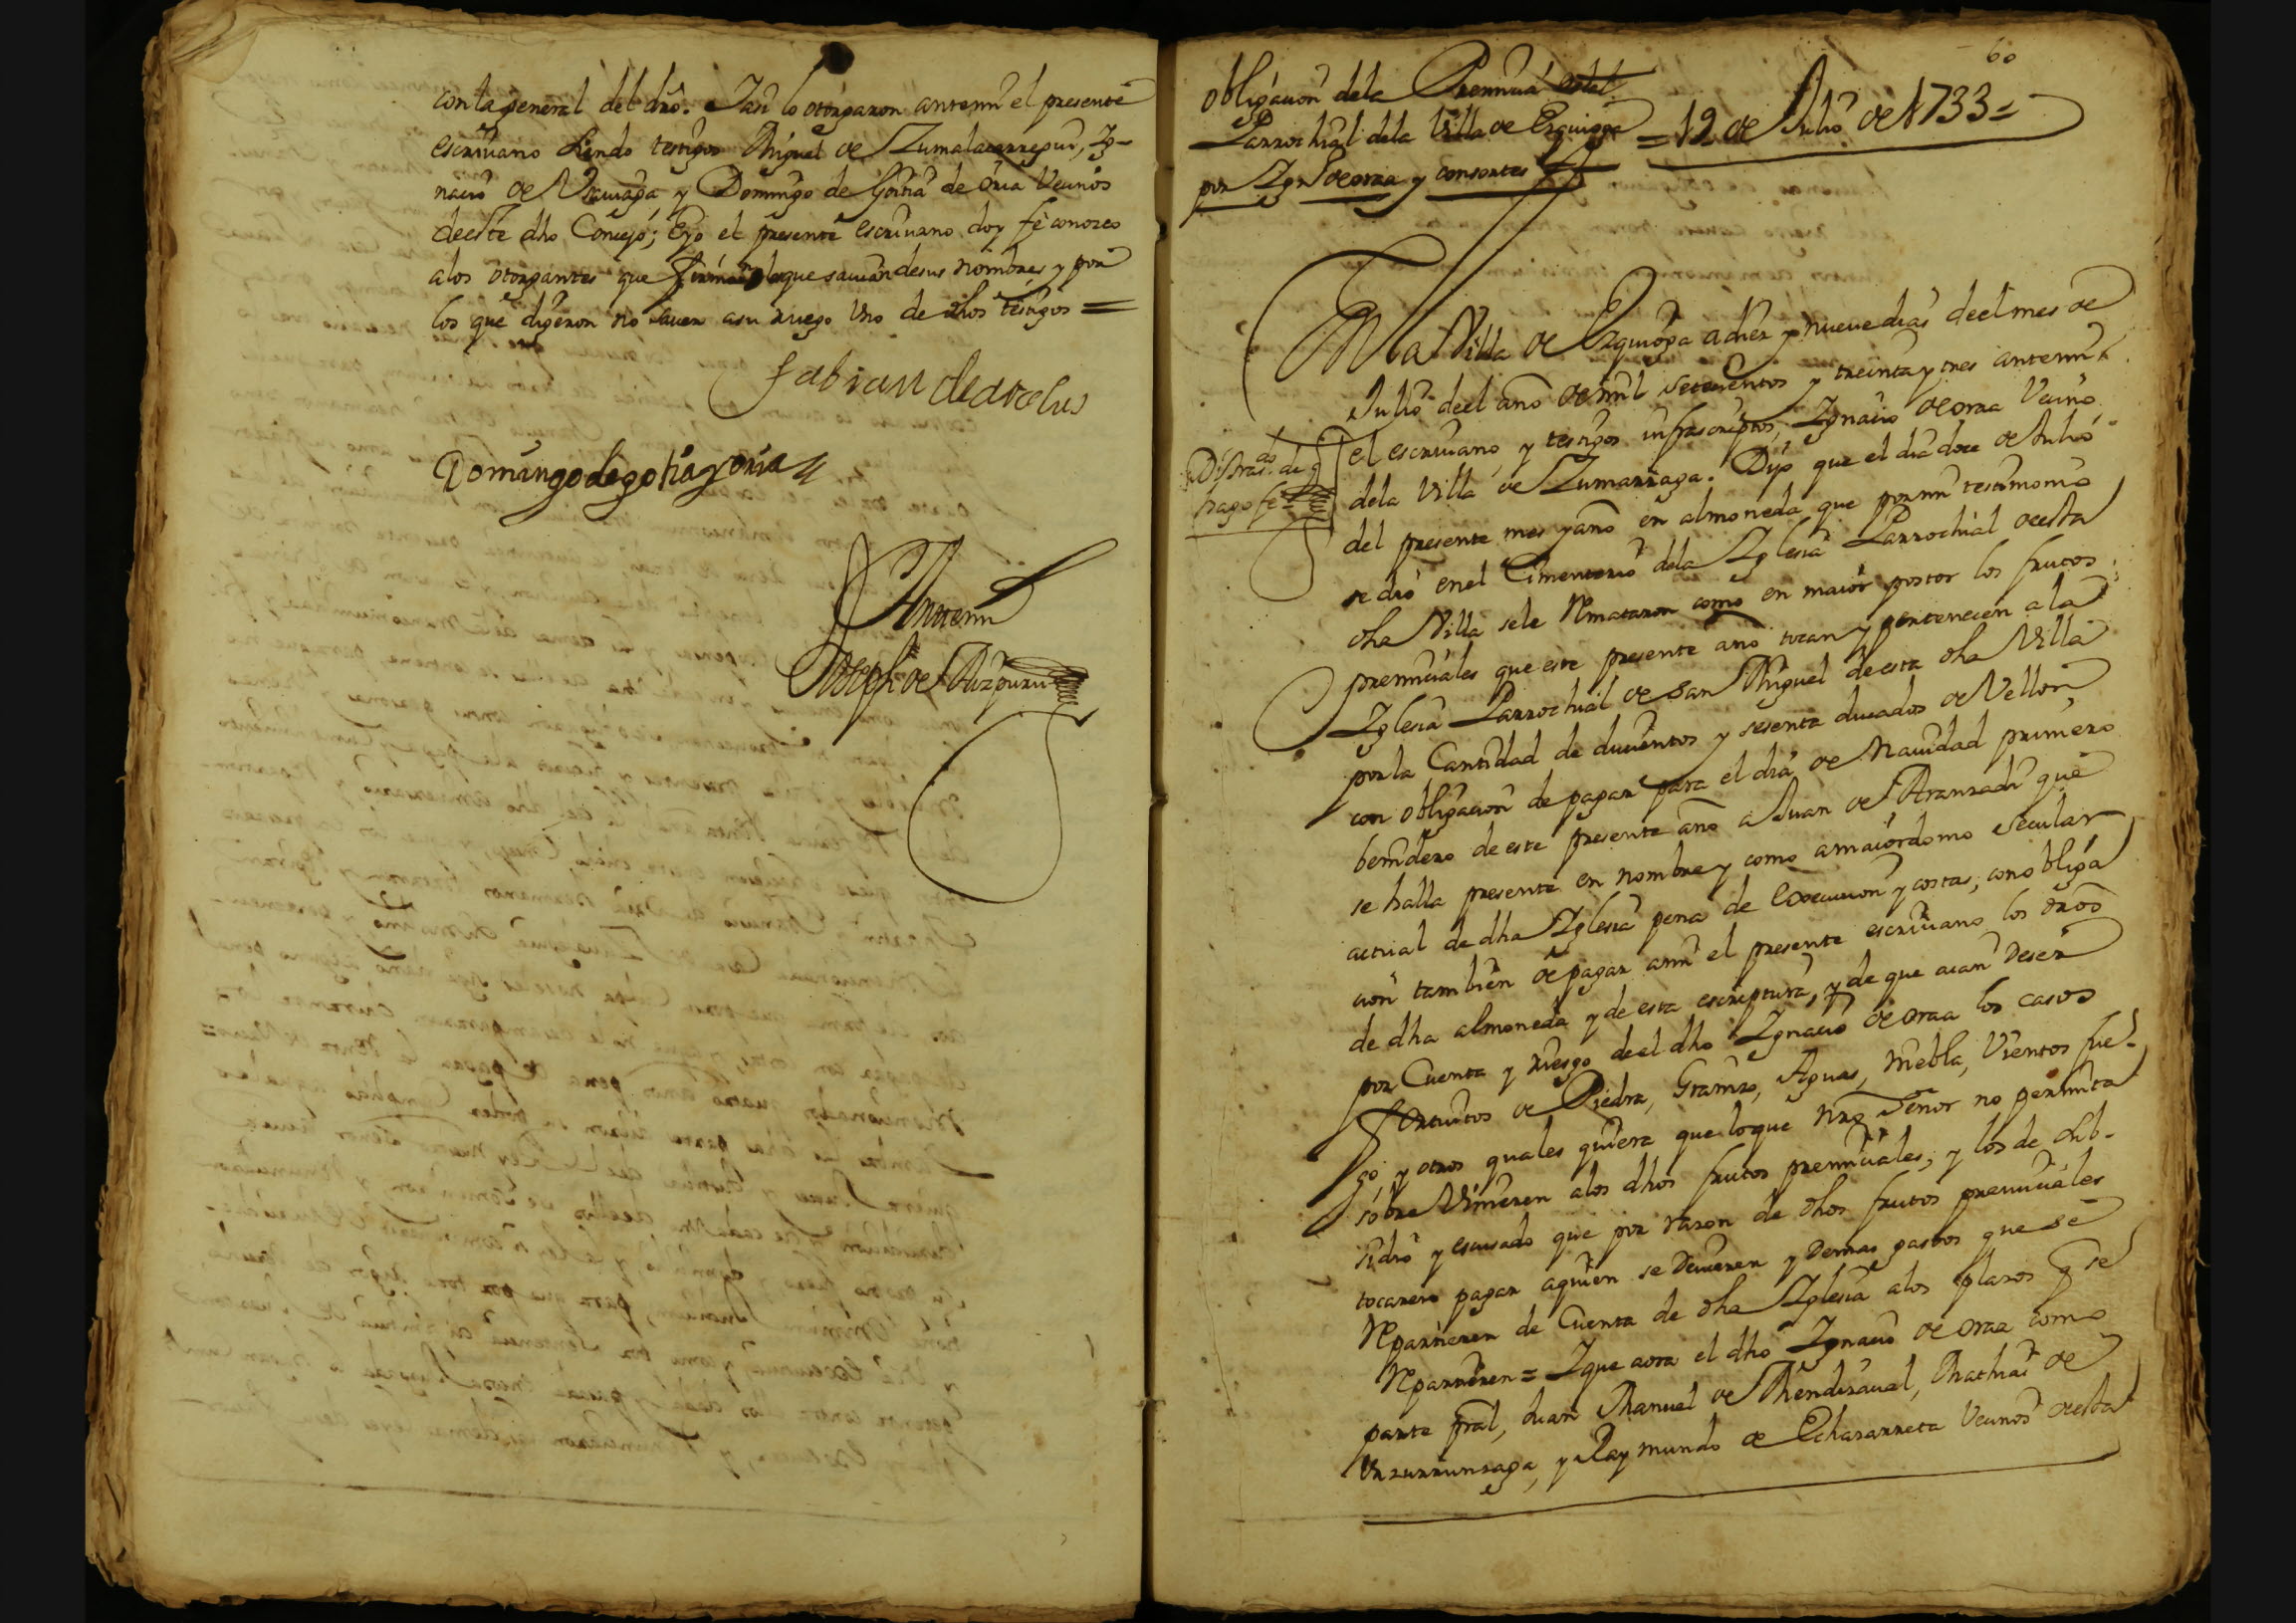 con la general del dro. Iasi lo otorgaron antemi el presente
escriuano siendo testigos Miguel de Zumalacarregui, Ig-
nacio de Vicuãga y Domingo de Goitia de Oria Vecinos
deeste dho Concejo; Eyo el presente escriuano doy fè conozco
alos otorgantes que firmaron los que sauian desus nombres y por
los que dijeron no sauer asu ruego Vno de dhos testigos =
fabian de arcelus
Domingo de goitia y oria
Antemi
Joseph de Aizpuru
60
obligacion dela Primicia
Parrochial dela Villa de Ezquioga = 19 de Julio de 1733 =
por Ign.o de oraa y consortes
En la Villa de Ezquioga adiez y nueue dias deel mes de
Julio deel año de mil setecientos y treinta y tres antemi
el escriuano y testigos infrascriptos, Ignacio de oraa Vecino
dela Villa de Zumarraga. Dijo que el dia doce de Julio
del presente mes y año en almoneda que por mi testimonio
se dio enel Cimenterio dela Iglesia Parrochial deesta
dha Villa sele Remataron como en maior postor los frutos
premiciales que este presente año tocan y pertenecen a la
Iglesia Parrochial de San Miguel de esta dha Villa
por la Cantidad de ducientos y sesenta ducados de Vellon,
con obligacion de pagar para el dia de Nauidad primero
benidero de este presente año a Juan de Aranzadi que
se halla presente en nombre y como amaiordomo secular
actual de dha Iglesia pena de execucion y costas; con obliga
cion tambien de pagar ami el presente escriuano los dros
de dha almoneda y de esta escriptura, y de que aian Deser
por Cuenta y riesgo deel dho Ignacio de oraa los casos
fortuitos de Piedra, Granizo, Aguas, Niebla, Vientos fue-
go y otros quales quiera que loque nro Señor no permita
sobre Vinieren alos dhos frutos premiciales; y los de Sub-
sidio y escusado que por razon de dhos frutos premiciales
tocarern pagar aquien se Deuieren y Demas gastos que se
Repartieren de Cuenta de dha Iglesia alos plazos q se
Repartieren = Ique aora el dho Ignacio de oraa como
parte pral, Juan Manuel de Mendizaual, Mathias de
Vrzurrunzaga, y Raymundo de Echazarreta Vecinos deesta
Distrado. de q
hago fê